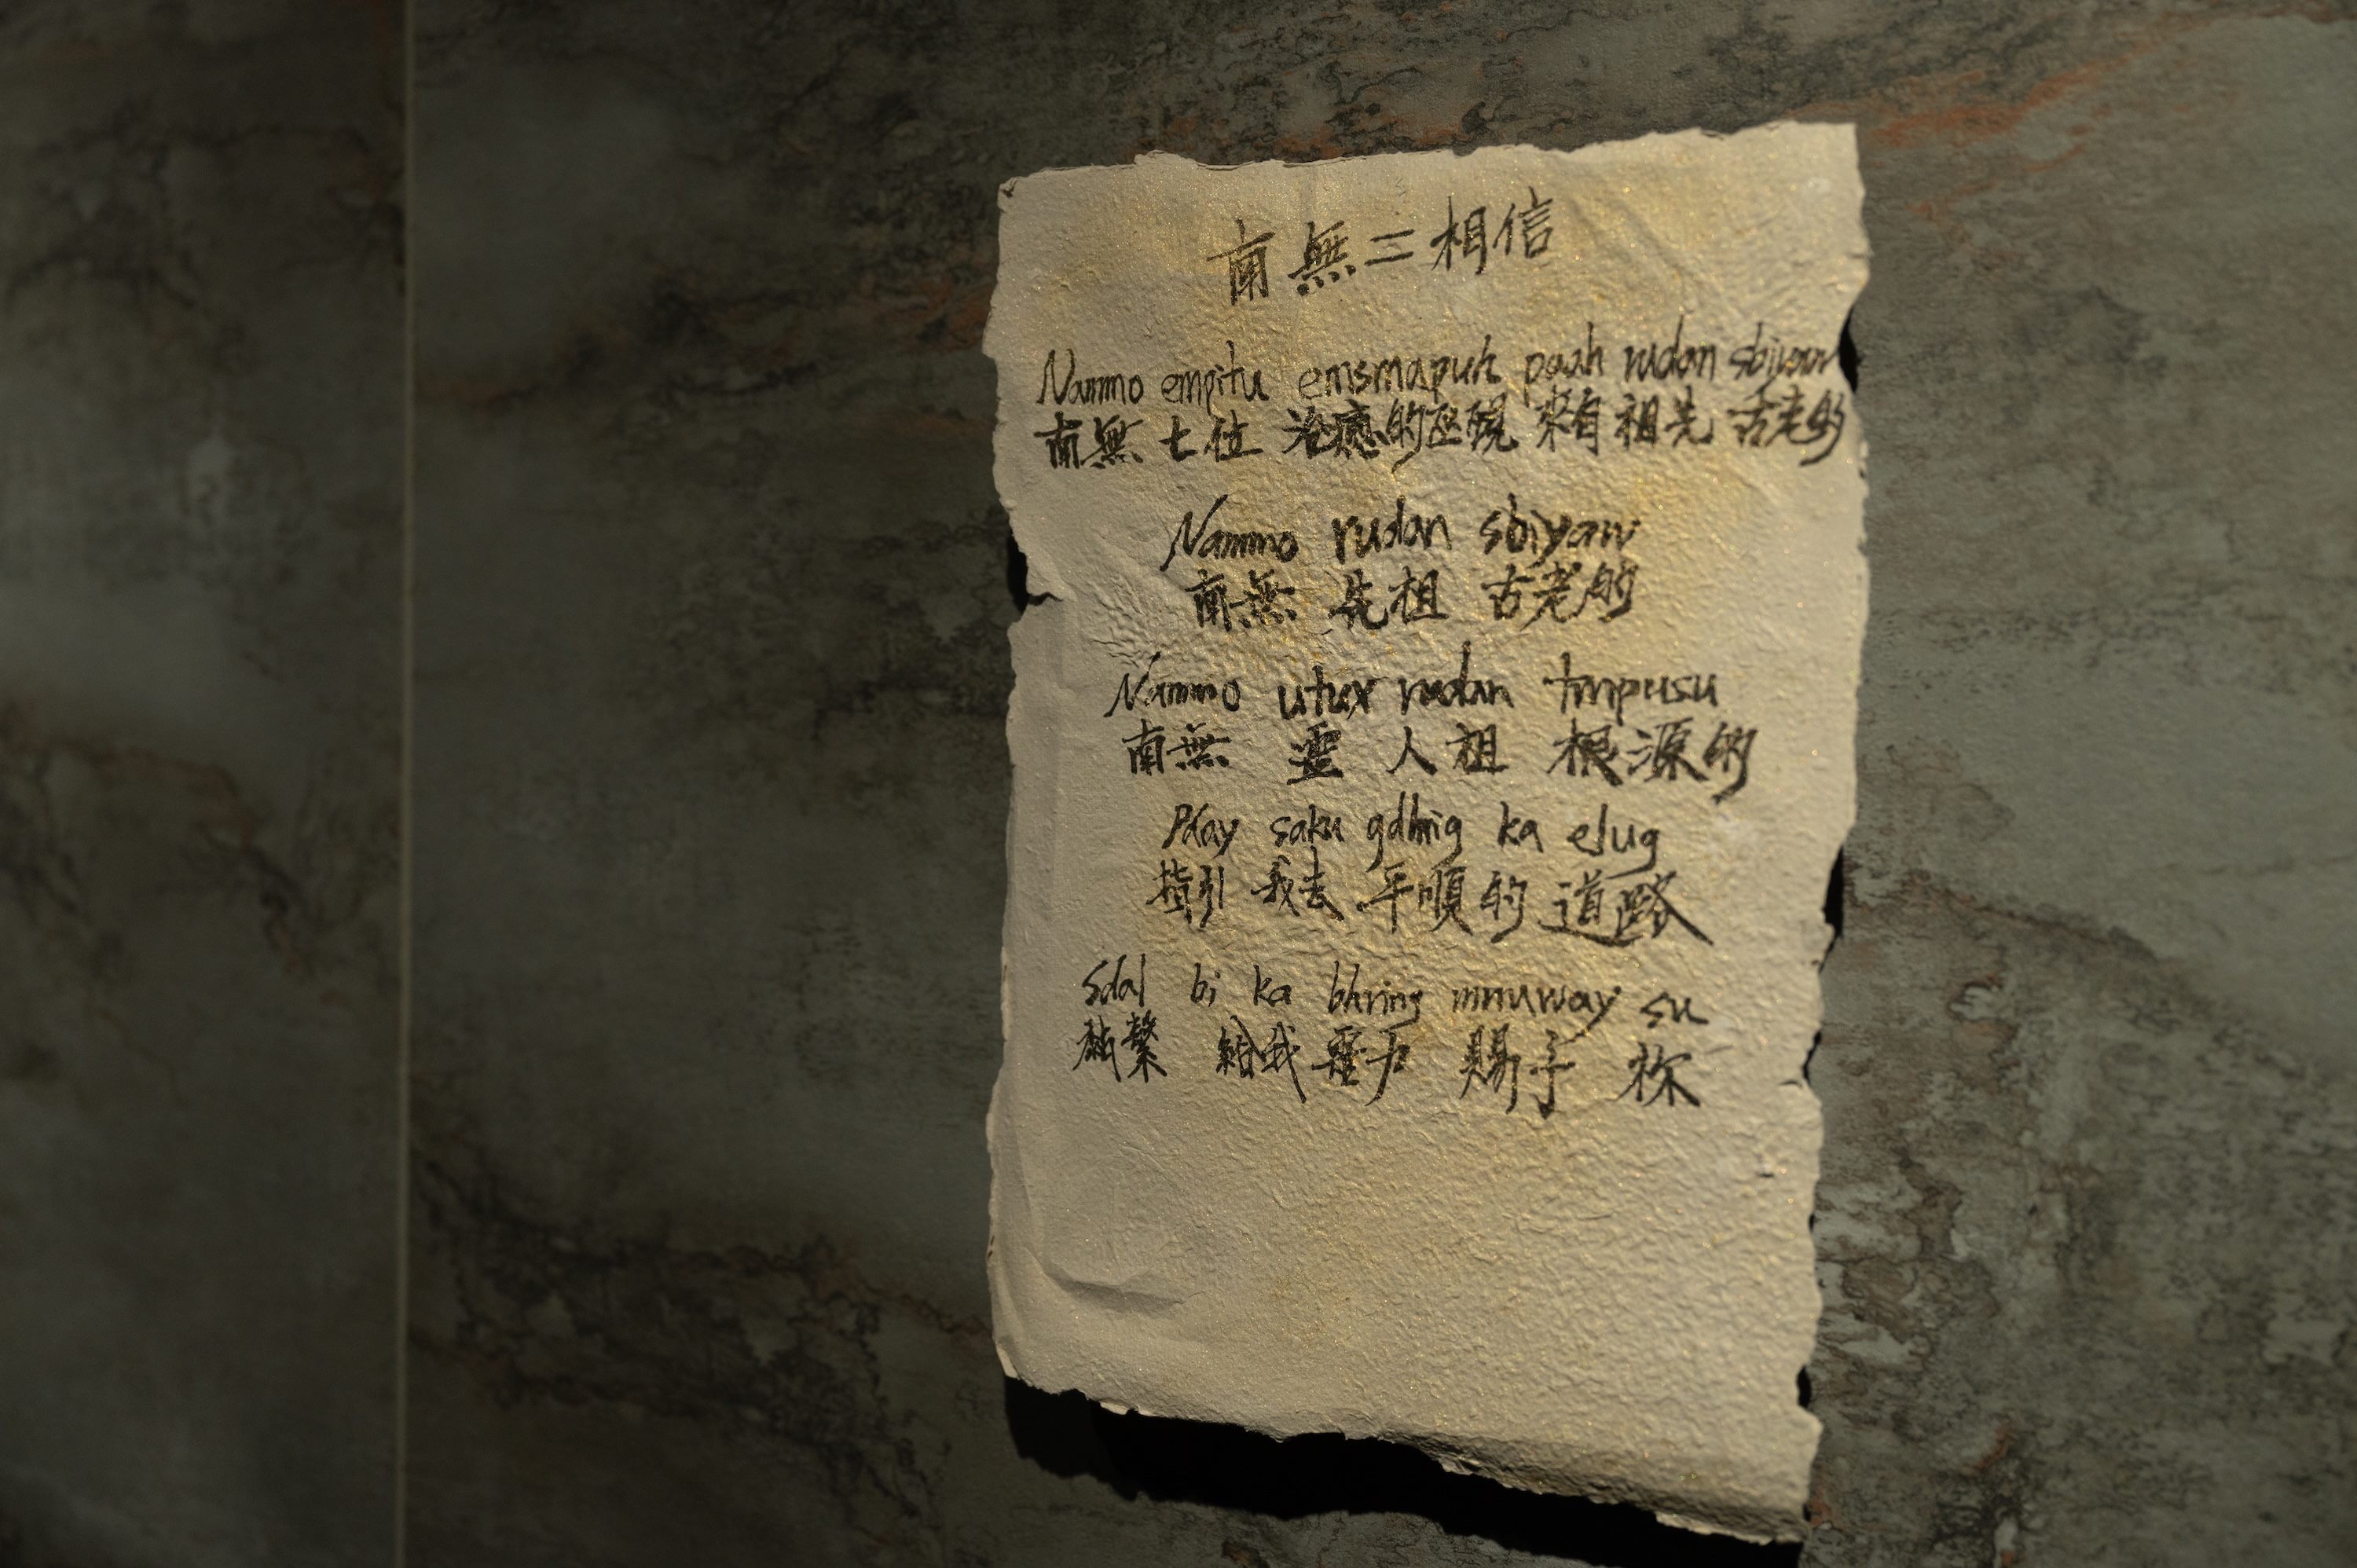 南無二相信
Nammo empitu emsmapuh paah rudan sbiyaw
南無 七位 治癒的巫醫 來自 祖先 古老的
Nammo rudan sbiyaw
南無 先祖 古老的
Nammo utux rudan tmpusu
南無 靈 人祖 根源的
Pday saku gdhing ka elug
指引 我去 平順的 道路
Sdal bi ka bhring mnuway su
黏繫 給我 靈力 賜予 祢